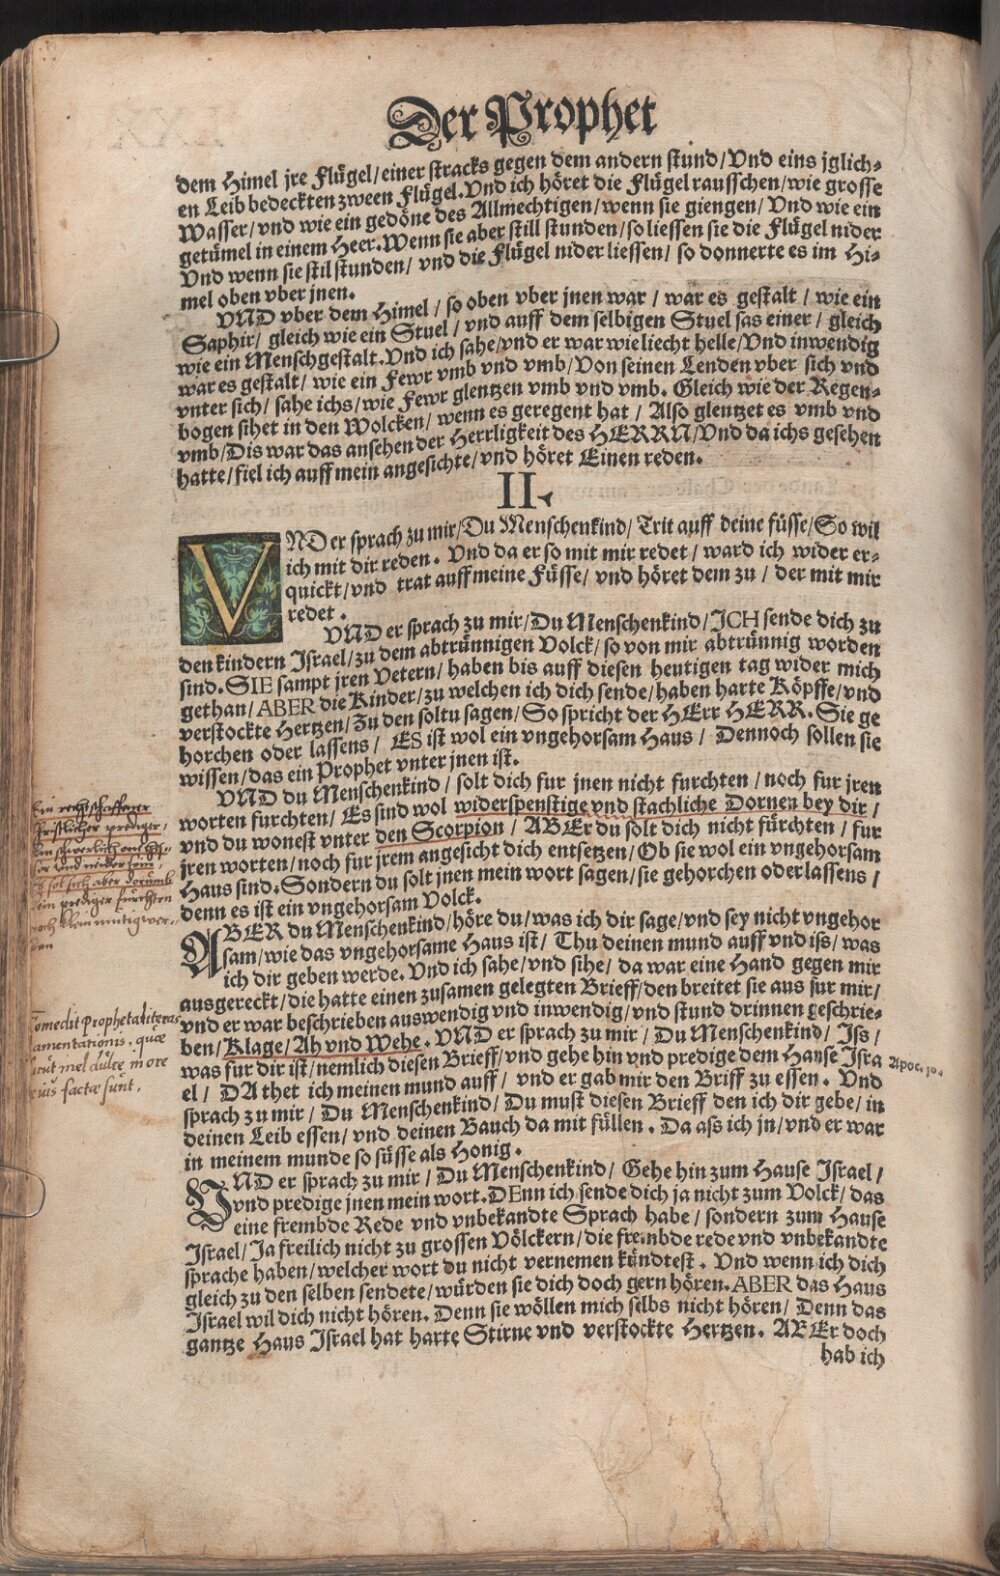 Der Prophet
dem Himel jre Flügel/ einer stracks gegen dem andern stund/ Vnd eins jglich-
en Leib bedeckten zween Flügel. Vnd ich höret die Flügel rausschen/ wie grosse
Wasser/ vnd wie ein gedöne des Allmechtigen/ wenn sie giengen/ Vnd wie ein
getümel in einem Heer. Wenn sie aber still stunden/ so liessen sie die Flügel nider
Vnd wenn sie stil stunden/ vnd die Flügel nider liessen/ so donnerte es im Hi-
mel oben vber jnen.
VND vber dem Himel/ so oben vber jnen war/ war es gestalt/ wie ein
Saphir/ gleich wie ein Stuel/ vnd auff dem selbigen Stuel sas einer/ gleich
wie ein Menschgestalt. Vnd ich sahe/ vnd er war wie liecht helle/ Vnd inwendig
war es gestalt/ wie ein Fewr vmb vnd vmb/ Von seinen Lenden vber sich vnd
vnter sich/ sahe ichs/ wie Fewr glentzen vmb vnd vmb. Gleich wie der Regen-
bogen sihet in den Wolcken/ wenn es geregent hat/ Also glentzet es vmb vnd
vmb/ Dis war das ansehen der Herrligkeit des HERRN/ Vnd da ichs gesehen
hatte/ fiel ich auff mein angesichte/ vnd höret Einen reden.
II.
VND er sprach zu mir/ Du Menschenkind/ Trit auff deine füsse/ So wil
ich mit dir reden. Vnd da er so mit mir redet/ ward ich wider er-
quickt/ vnd trat auff meine Füsse/ vnd höret dem zu/ der mit mir
redet.
VND er sprach zu mir/ Du Menschenkind/ ICH sende dich zu
den kindern Israel/ zu dem abtrünnigen Volck/ so von mir abtrünnig worden
sind. SIE sampt jren Vetern/ haben bis auff diesen heutigen tag wider mich
gethan/ ABER die Kinder/ zu welchen ich dich sende/ haben harte Köpffe/ vnd
verstockte Hertzen/ Zu den soltu sagen/ So spricht der HErr HERR. Sie ge
horchen oder lassens/ ES ist wol ein vngehorsam Haus/ Dennoch sollen sie
wissen/ das ein Prophet vnter jnen ist.
VND du Menschenkind/ solt dich fur jnen nicht furchten/ noch fur jren
worten furchten/ Es sind wol widerspenstige vnd stachliche Dornen bey dir/
vnd du wonest vnter den Scorpion/ ABEr du solt dich nicht fürchten/ fur
jren worten/ noch fur jrem angesicht dich entsetzen/ Ob sie wol ein vngehorsam
Haus sind. Sondern du solt jnen mein wort sagen/ sie gehorchen oder lassens/
denn es ist ein vngehorsam Volck.
ABER du Menschenkind/ höre du/ was ich dir sage/ vnd sey nicht vngehor
sam/ wie das vngehorsame Haus ist/ Thu deinen mund auff vnd iss/ was
ich dir geben werde. Vnd ich sahe/ vnd sihe/ da war eine Hand gegen mir
ausgereckt/ die hatte einen zusamen gelegten Brieff/ den breitet sie aus fur mir/
vnd er war beschrieben auswendig vnd inwendig/ vnd stund drinnen geschrie-
ben/ Klage/ Ah vnd Wehe. VND er sprach zu mir/ Du Menschenkind/ Iss/
was fur dir ist/ nemlich diesen Brieff/ vnd gehe hin vnd predige dem Hause Isra
el/ DA thet ich meinen mund auff/ vnd er gab mir den Briff zu essen. Vnd
sprach zu mir/ Du Menschenkind/ Du must diesen Brieff den ich dir gebe/ in
deinen Leib essen/ vnd deinen Bauch da mit füllen. Da ass ich jn/ vnd er war
in meinem munde so süsse als Honig.
VND er sprach zu mir/ Du Menschenkind/ Gehe hin zum Hause Israel/
vnd predige jnen mein wort. DEnn ich sende dich ja nicht zum Volck/ das
eine frembde Rede vnd vnbekandte Sprach habe/ sondern zum Hause
Israel/ Ja freilich nicht zu grossen Völckern/ die frembde rede vnd vnbekandte
sprache haben/ welcher wort du nicht vernemen kündtest. Vnd wenn ich dich
gleich zu den selben sendete/ würden sie dich doch gern hören. ABER das Haus
Israel wil dich nicht hören. Denn sie wöllen mich selbs nicht hören/ Denn das
gantze Haus Israel hat harte Stirne vnd verstockte Hertzen. ABEr doch
hab ich
Ein rechtschaffener
Christlicher prediger,
sol sich aber darumb
kein prediger fürchten
noch kleinmutig wer-
den
Comedit Propheta literas
lamentationis, quae
sicut mel dulce in ore
eius factae sunt.
Apoc. 10.